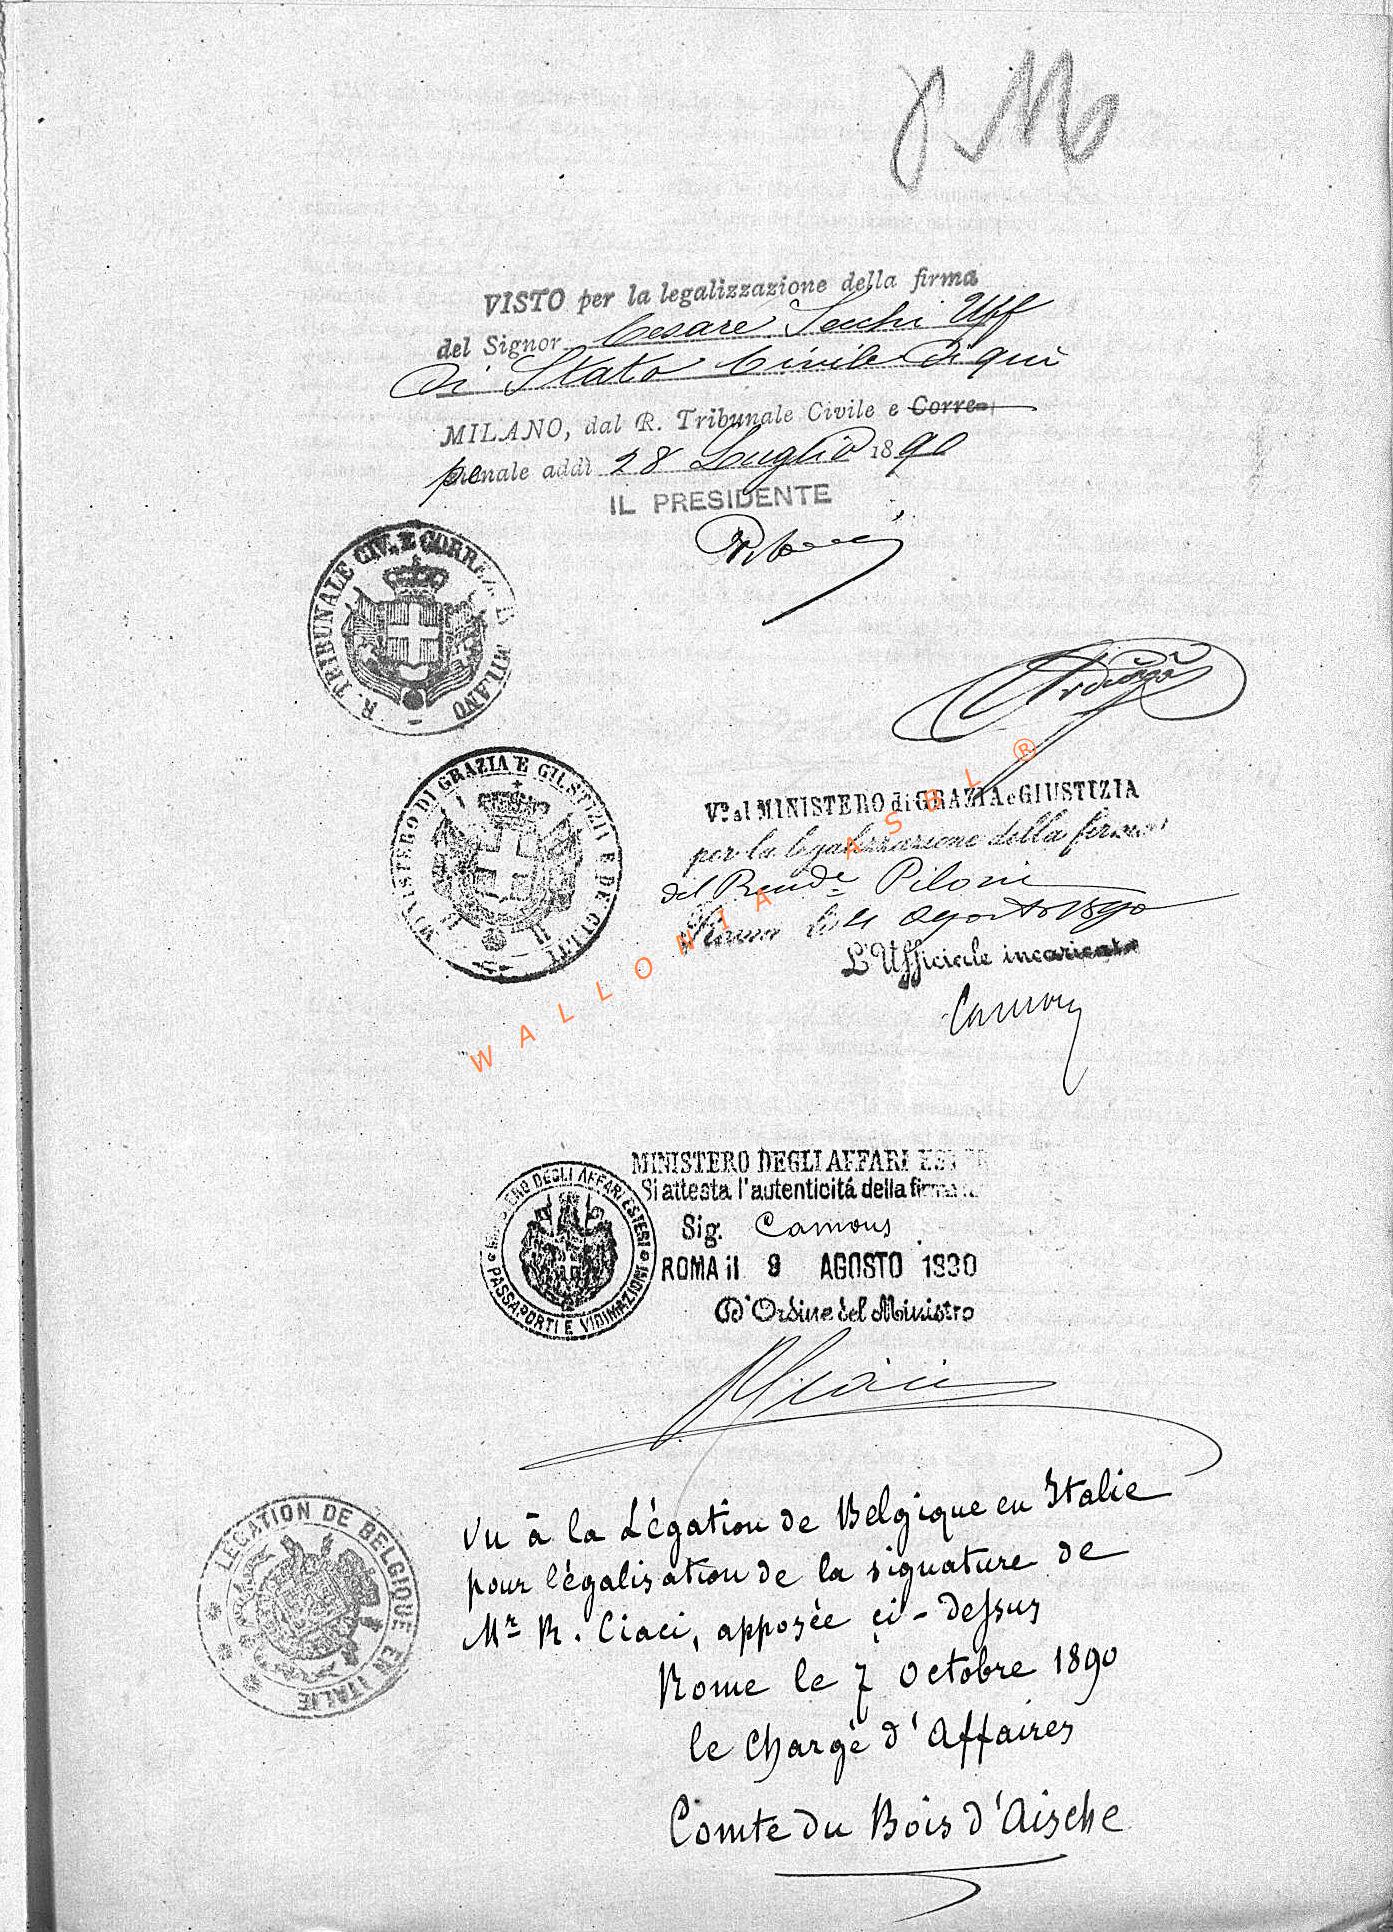 VISTO per la legalizzazione della firma
del Signor Cesare Secchi Uff
di Stato Civile di qui
MILANO, dal R. Tribunale Civile e Corre-
penale addì 28 Luglio 1890
IL PRESIDENTE
R. TRIBUNALE CIV. E CORREZ. MILANO
MINISTERO DI GRAZIA E GIUSTIZIA E DE CULTI
Vº al MINISTERO di GRAZIA e GIUSTIZIA
per la legalizzazione della firma
del Pres.de Piloni
Roma li 4 Agosto 1890
L'Ufficiale incaricato
Camous
MINISTERO DEGLI AFFARI ESTERI
Si attesta l'autenticitá della firma
Sig. Camous
ROMA il 9 AGOSTO 1890
D'Ordine del Ministro
MINISTERO DEGLI AFFARI ESTERI
PASSAPORTI E VIDIMAZIONI
R Ciaci
LÉGATION DE BELGIQUE EN ITALIE
Vu à la Légation de Belgique en Italie
pour légalisation de la signature de
Mr R. Ciaci, apposée ci-dessus
Rome le 7 Octobre 1890
le Chargé d'Affaires
Comte du Bois d'Aische
WALLONIA ASBL ®